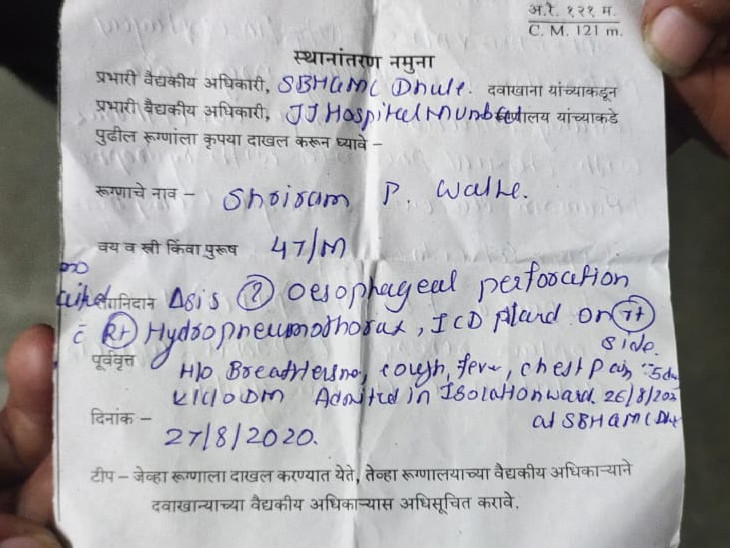 अ.रे. १२१ म.
C. M. 121 m.
स्थानांतरण नमुना
प्रभारी वैद्यकीय अधिकारी, SBHGMC Dhule. दवाखाना यांच्याकडून
प्रभारी वैद्यकीय अधिकारी, JJ Hospital Mumbai यांच्याकडे
पुढील रूग्णांला कृपया दाखल करून घ्यावे –
रूग्णाचे नाव – Shriram P.
वय व स्त्री किंवा पुरूष 47/M
रोगनिदान Δsis ? Oesophageal perforation
c̄ Rt Hydropneumothorax, ICD Placed on rt
side.
पूर्ववृत्त H/o Breathlessne, cough, fever, chest pain
K/C/O DM Admitted in Isolation ward 26/8/202
at SBHGMC Dh
दिनांक – 27/8/2020.
टीप – जेव्हा रूग्णाला दाखल करण्यात येते, तेव्हा रूग्णालयाच्या वैद्यकीय अधिकाऱ्याने
दवाखान्याच्या वैद्यकीय अधिकाऱ्यास अधिसूचित करावे.